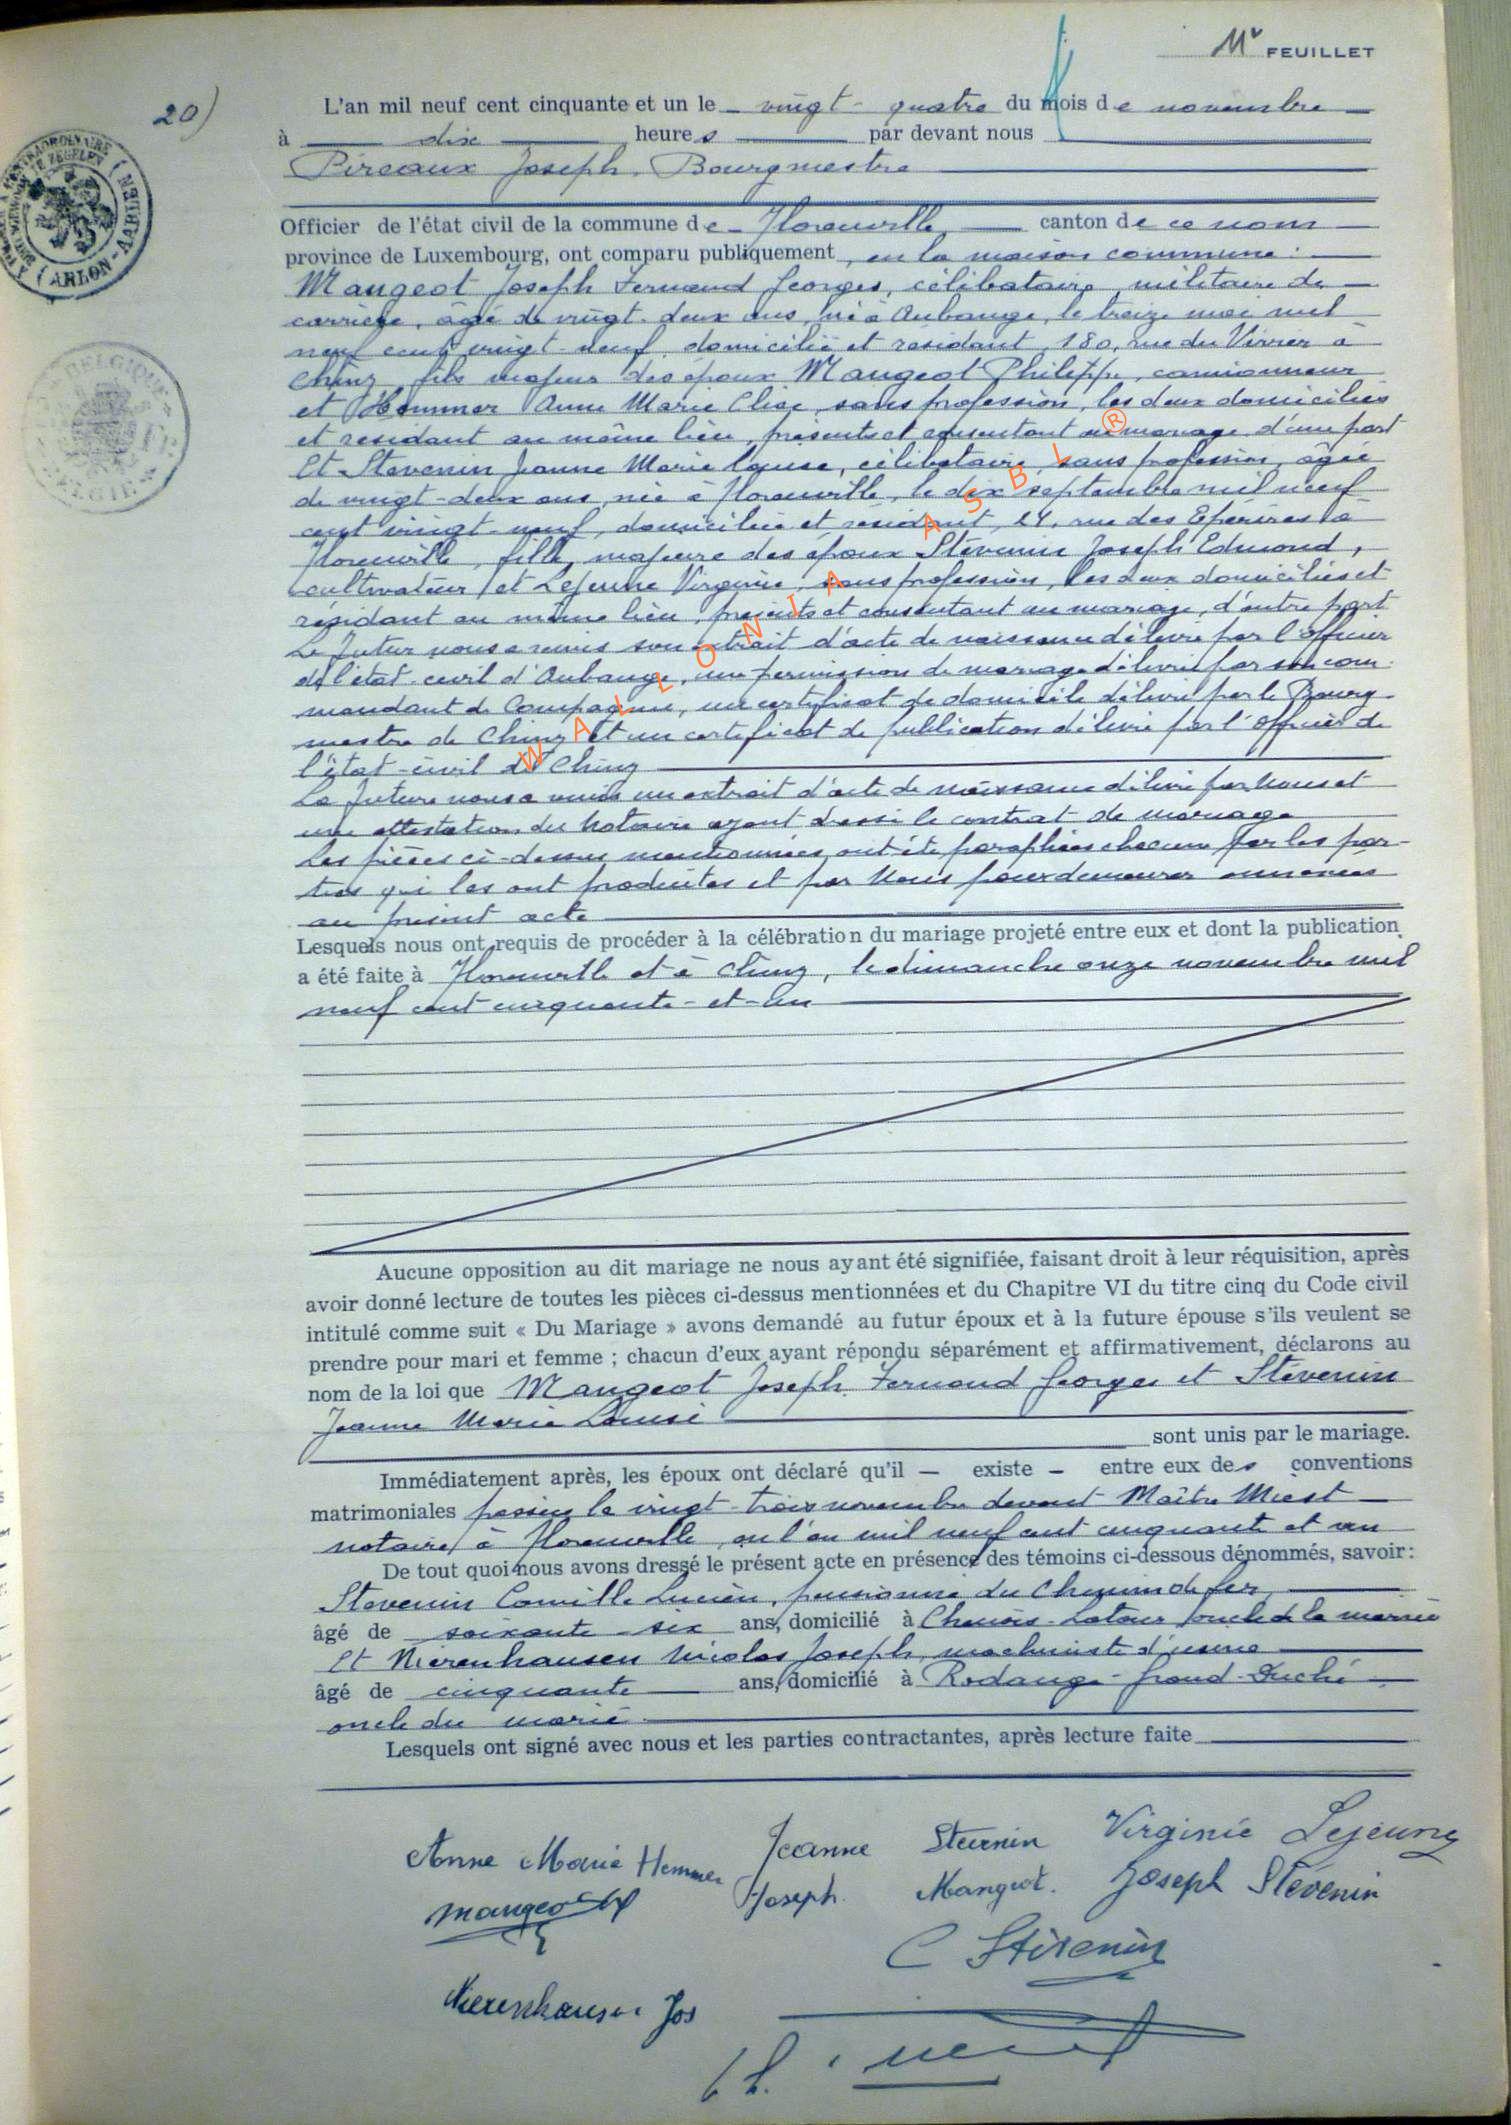 11e FEUILLET
20)
L'an mil neuf cent cinquante et un le vingt-quatre du mois de novembre
à dix heures par devant nous
Pireaux Joseph, Bourgmestre
Officier de l'état civil de la commune de Florenville canton de ce nom
province de Luxembourg, ont comparu publiquement, en la maison commune :
Mangeot Joseph Fernand Georges, célibataire, militaire de
carrière, âgé de vingt-deux ans, né à Aubange, le treize mai mil
neuf cent vingt-neuf, domicilié et résidant, 180, rue du Vivier à
Chiny, fils majeur des époux Mangeot Philippe, camionneur
et Hemmer Anne Marie Elise, sans profession, les deux domiciliés
et résidant au même lieu, présents et consentant au mariage, d'une part
Et Stevenin Jeanne Marie Louise, célibataire, sans profession, âgée
de vingt-deux ans, née à Florenville, le dix septembre mil neuf
cent vingt-neuf, domiciliée et résidant, 24, rue des Epérires à
Florenville, fille majeure des époux Stévenin Joseph Edmond,
cultivateur et Lejeune Virginie, sans profession, les deux domiciliés et
résidant au même lieu, présents et consentant au mariage, d'autre part
Le futur nous a remis son extrait d'acte de naissance délivré par l'officier
de l'état-civil d'Aubange, une permission de mariage délivrée par son com-
mandant de Compagnie, un certificat de domicile délivré par le Bourg-
mestre de Chiny et un certificat de publication délivré par l'officier de
l'état-civil de Chiny
La future nous a remis un extrait d'acte de naissance délivré par Nous et
une attestation du Notaire ayant dressé le contrat de mariage
Les pièces ci-dessus mentionnées ont été paraphées chacune par les par-
ties qui les ont produites et par Nous pour demeurer annexées
au présent acte
Lesquels nous ont requis de procéder à la célébration du mariage projeté entre eux et dont la publication
a été faite à Florenville et à Chiny, le dimanche onze novembre mil
neuf cent cinquante-et-un
Aucune opposition au dit mariage ne nous ayant été signifiée, faisant droit à leur réquisition, après
avoir donné lecture de toutes les pièces ci-dessus mentionnées et du Chapitre VI du titre cinq du Code civil
intitulé comme suit « Du Mariage » avons demandé au futur époux et à la future épouse s'ils veulent se
prendre pour mari et femme ; chacun d'eux ayant répondu séparément et affirmativement, déclarons au
nom de la loi que Mangeot Joseph Fernand Georges et Stévenin
Jeanne Marie Louise
sont unis par le mariage.
Immédiatement après, les époux ont déclaré qu'il — existe — entre eux des conventions
matrimoniales passées le vingt-trois novembre devant Maître Miest
notaire à Florenville, en l'an mil neuf cent cinquante et un
De tout quoi nous avons dressé le présent acte en présence des témoins ci-dessous dénommés, savoir :
Stevenin Camille Lucien, pensionné du Chemin de fer
âgé de soixante-six ans, domicilié à Chenois-Latour oncle de la mariée
Et Nierenhausen Nicolas Joseph, machiniste d'usine
âgé de cinquante ans, domicilié à Rodange-Grand-Duché
oncle du marié
Lesquels ont signé avec nous et les parties contractantes, après lecture faite
Anne Marie Hemmer Jeanne Stevenin Virginie Lejeune
Mangeot Ph Joseph Mangeot. Joseph Stévenin
C Stévenin
Nierenhausen Jos
ARLON-AARLEN
BELGIQUE
BELGIE
WALLONIA ASBL ®